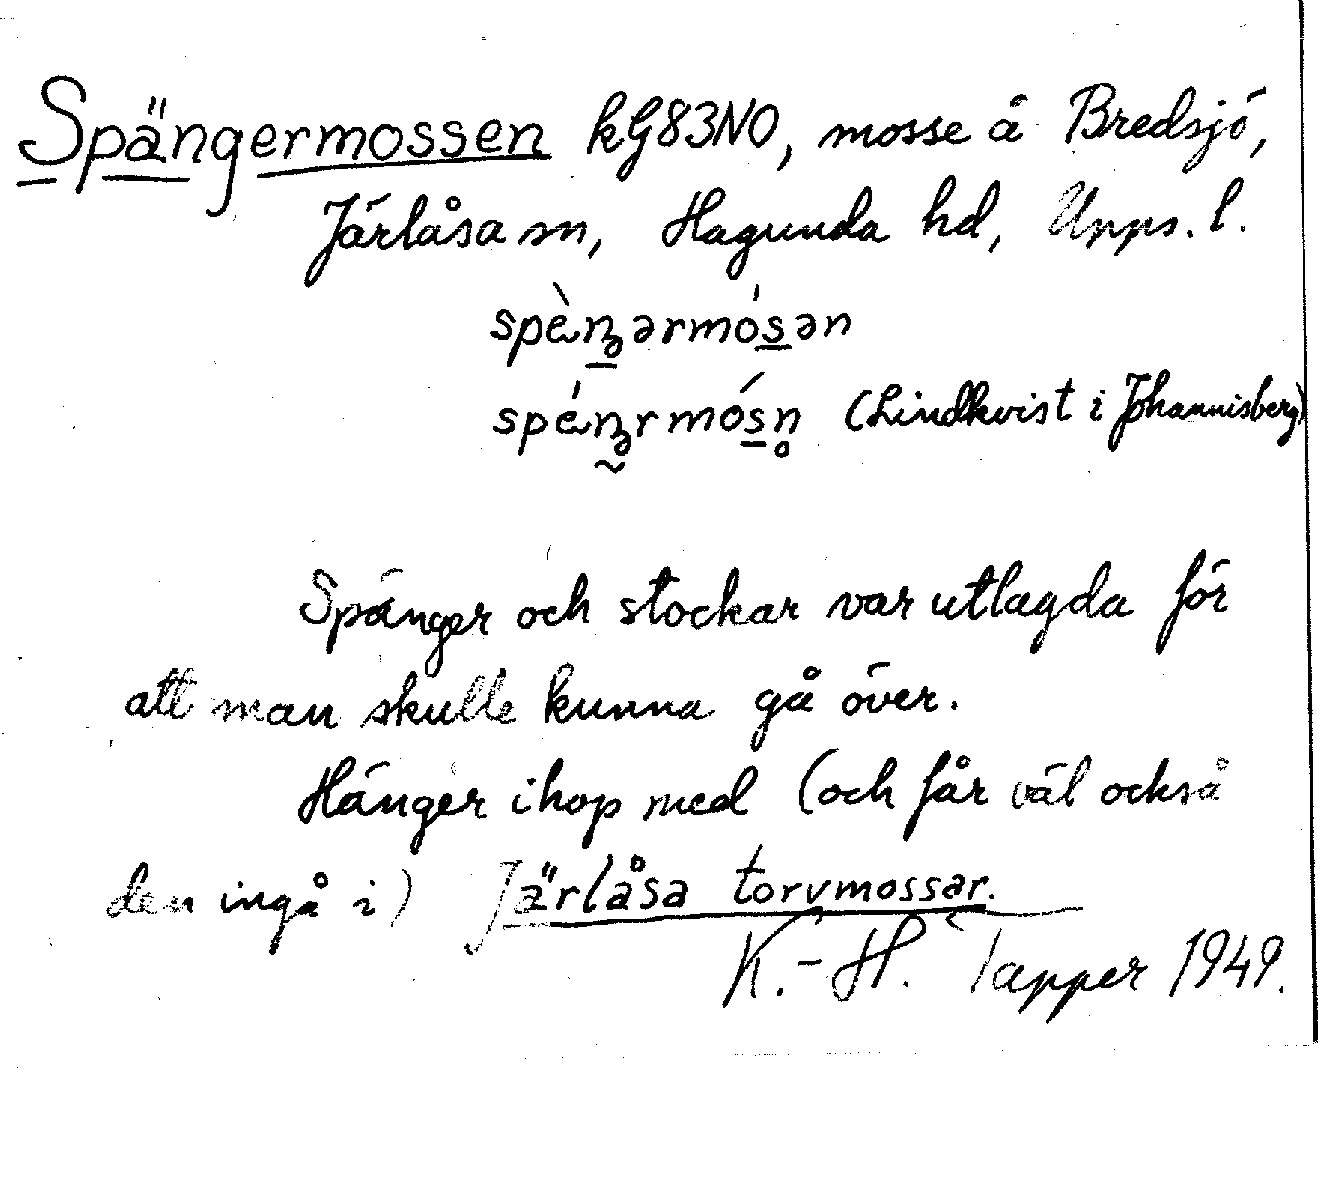 Spängermossen kG83NO, mosse å Bredsjö,
Järlåsa sn, Hagunda hd, Upps. l.
spèŋərmósən
spéŋrmósn̥ (Lindkvist i Johannisberg)
Spänger och stockar var utlagda för
att man skulle kunna gå över.
Hänger ihop med (och får väl också
den ingå i) Järlåsa torvmossar.
K.-H. Tapper 1949.